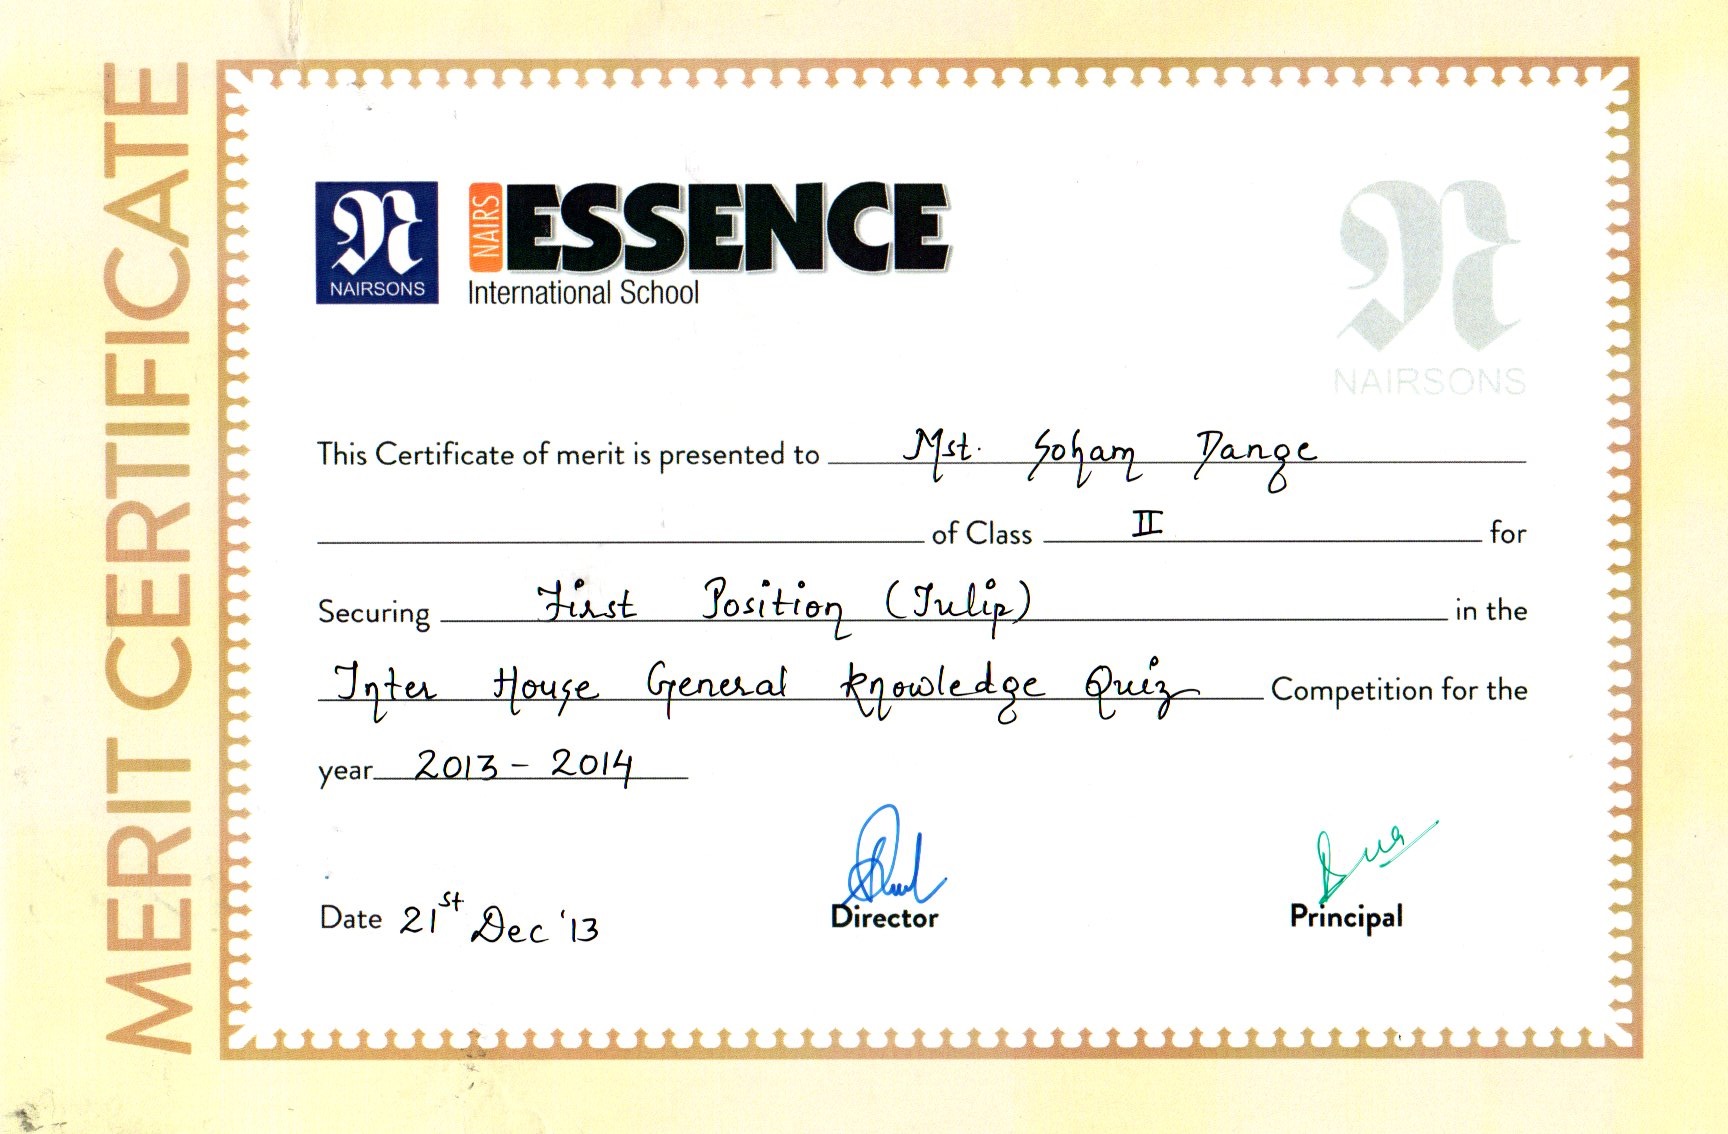 MERIT CERTIFICATE
N
NAIRSONS
NAIRS ESSENCE
International School
N
NAIRSONS
This Certificate of merit is presented to Mst. Soham Dange
of Class II for
Securing First Position (Tulip) in the
Inter House General Knowledge Quiz Competition for the
year 2013 - 2014
Date 21st Dec '13
Director
Principal